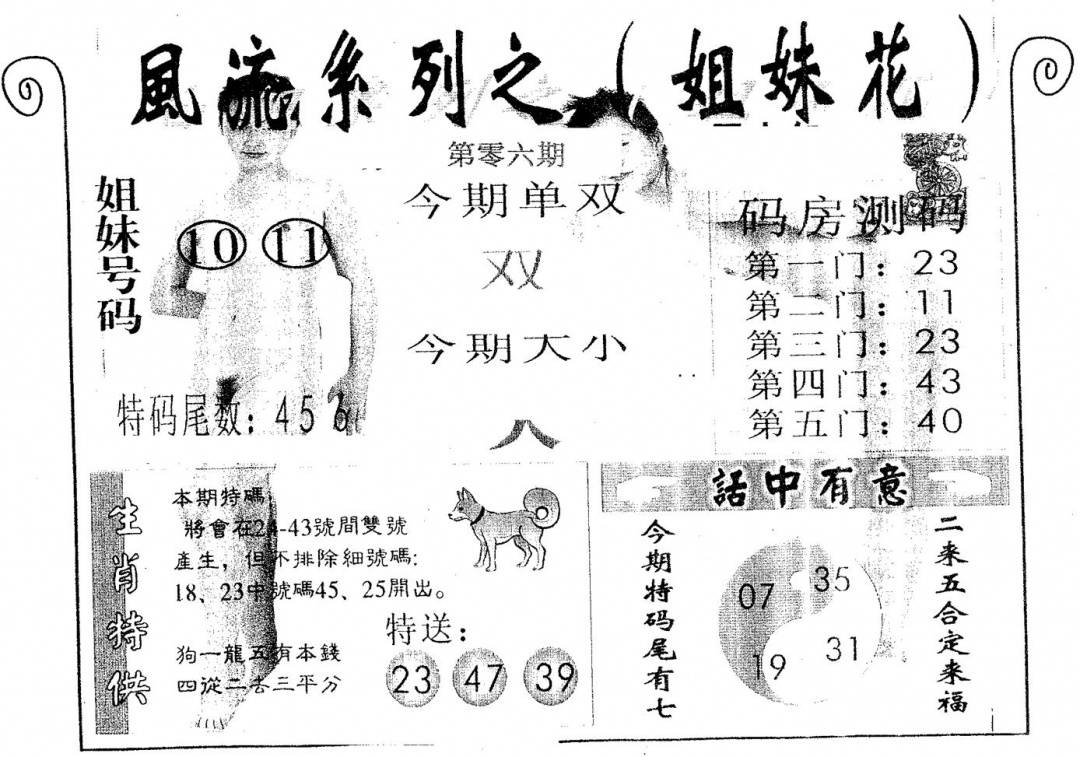 風流系列之（姐妹花）
第零六期
今期单双
双
今期大小
姐妹号码
10 11
特码尾数：456
码房测码
第一门：23
第二门：11
第三门：23
第四门：43
第五门：40
生肖特供
本期特碼：
將會在24-43號間雙號
產生，但不排除細號碼：
18、23中號碼45、25開出。
狗一龍五有本錢
四從二去三平分
特送：
23 47 39
話中有意
今期特码尾有七
07 35
19 31
二来五合定来福